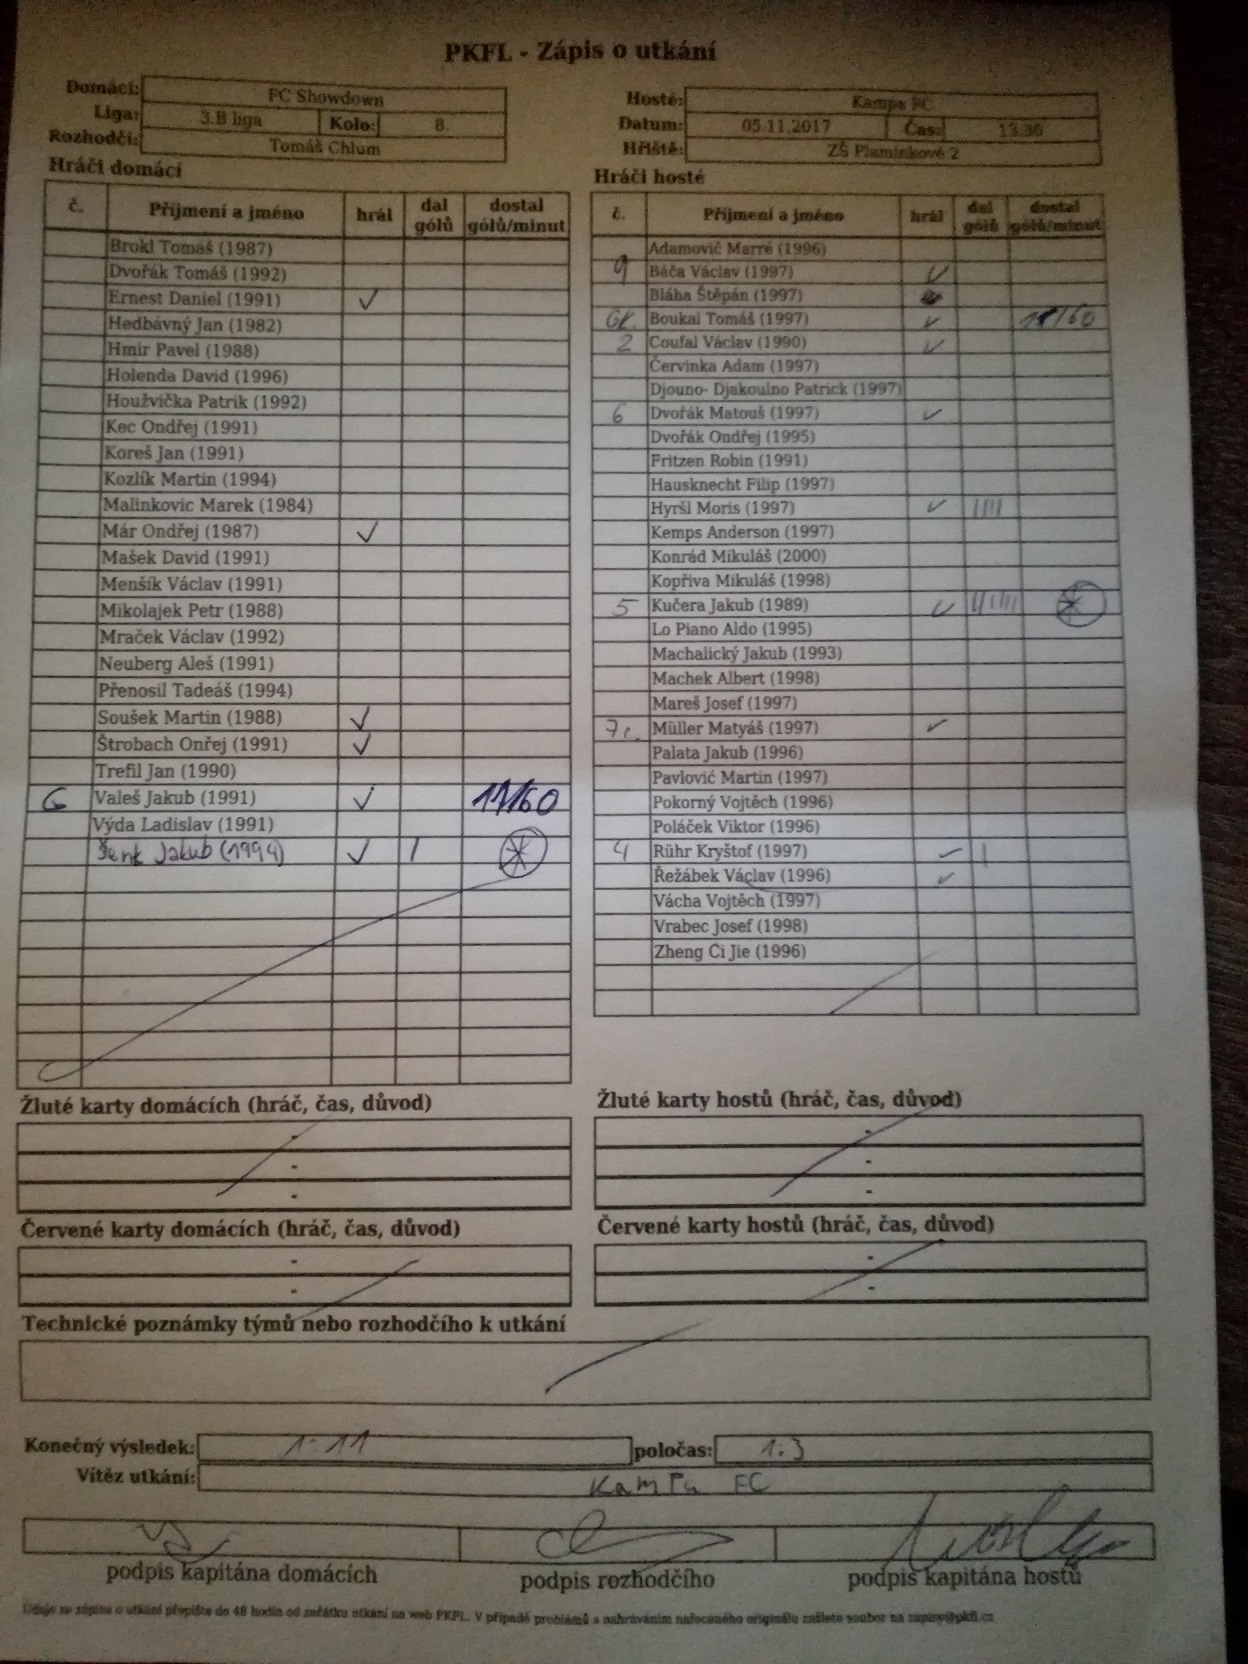 PKFL - Zápis o utkání
Domácí: FC Showdown
Liga: 3.B liga Kolo: 8.
Rozhodčí: Tomáš Chlum
Hosté: Kampa FC
Datum: 05.11.2017 Čas: 13.30
Hřiště: ZŠ Plamínkové 2
Hráči domácí
č. Příjmení a jméno hrál dal gólů dostal gólů/minut
Brokl Tomáš (1987)
Dvořák Tomáš (1992)
Ernest Daniel (1991) ✓
Hedbávný Jan (1982)
Hmir Pavel (1988)
Holenda David (1996)
Houžvička Patrik (1992)
Kec Ondřej (1991)
Koreš Jan (1991)
Kozlík Martin (1994)
Malinkovic Marek (1984)
Már Ondřej (1987) ✓
Mašek David (1991)
Menšík Václav (1991)
Mikolajek Petr (1988)
Mraček Václav (1992)
Neuberg Aleš (1991)
Přenosil Tadeáš (1994)
Soušek Martin (1988) ✓
Štrobach Onřej (1991) ✓
Trefil Jan (1990)
G Valeš Jakub (1991) ✓ 11/60
Výda Ladislav (1991)
Jakub (1994) ✓ |
Hráči hosté
č. Příjmení a jméno hrál dal gólů dostal gólů/minut
Adamovič Marré (1996)
9 Báča Václav (1997) ✓
Bláha Štěpán (1997)
GK Boukal Tomáš (1997) ✓ /60
2 Coufal Václav (1990) ✓
Červinka Adam (1997)
Djouno- Djakoulno Patrick (1997)
6 Dvořák Matouš (1997) ✓
Dvořák Ondřej (1995)
Fritzen Robin (1991)
Hausknecht Filip (1997)
Hyršl Moris (1997) ✓ ||||
Kemps Anderson (1997)
Konrád Mikuláš (2000)
Kopřiva Mikuláš (1998)
5 Kučera Jakub (1989) ✓ ||||||
Lo Piano Aldo (1995)
Machalický Jakub (1993)
Machek Albert (1998)
Mareš Josef (1997)
7c. Müller Matyáš (1997) ✓
Palata Jakub (1996)
Pavlović Martin (1997)
Pokorný Vojtěch (1996)
Poláček Viktor (1996)
4 Rühr Kryštof (1997) ✓ |
Řežábek Václav (1996) ✓
Vácha Vojtěch (1997)
Vrabec Josef (1998)
Zheng Ci Jie (1996)
Žluté karty domácích (hráč, čas, důvod)
-
-
-
Žluté karty hostů (hráč, čas, důvod)
-
-
-
Červené karty domácích (hráč, čas, důvod)
-
-
Červené karty hostů (hráč, čas, důvod)
-
-
Technické poznámky týmů nebo rozhodčího k utkání
Konečný výsledek: 1:11 poločas: 1:3
Vítěz utkání: Kampa FC
podpis kapitána domácích podpis rozhodčího podpis kapitána hostů
Údaje ze zápisu o utkání přepište do 48 hodin od začátku utkání na web PKFL. V případě problémů s nahráváním nafoceného originálu zašlete soubor na zapisy@pkfl.cz